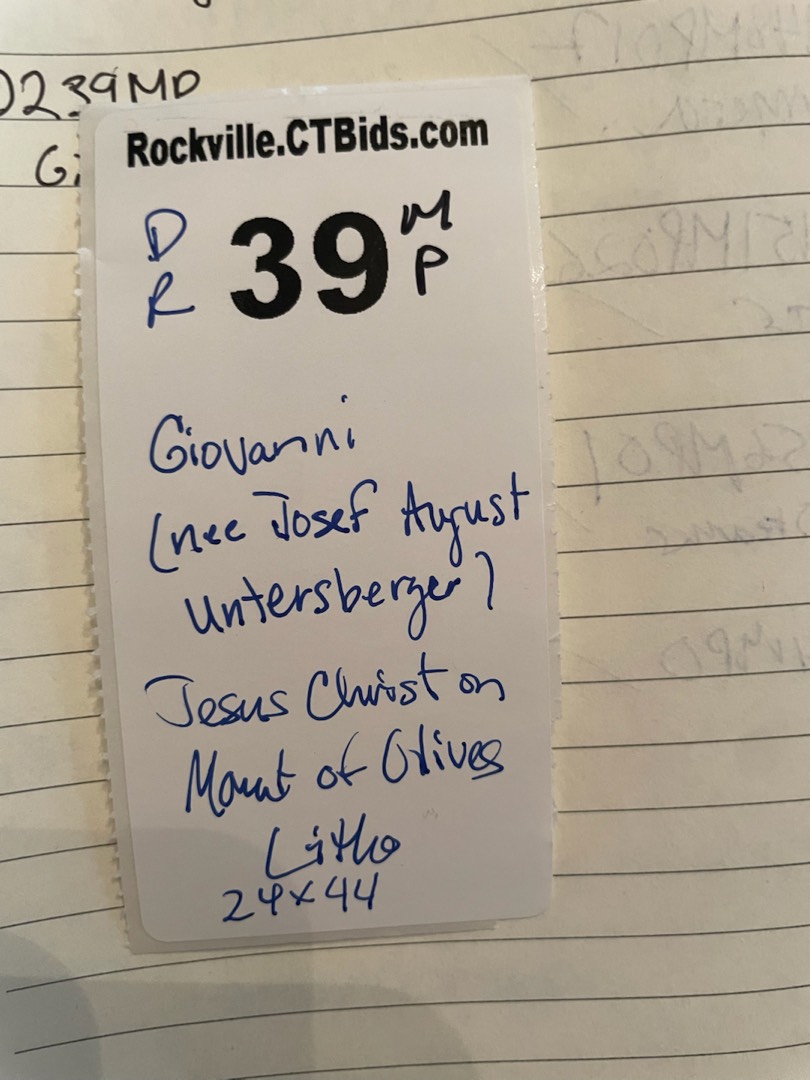 239MD
Gi
Rockville.CTBids.com
DR 39 MP
Giovanni
(nee Josef August
Untersberger)
Jesus Christ on
Mount of Olives
Litho
24x44